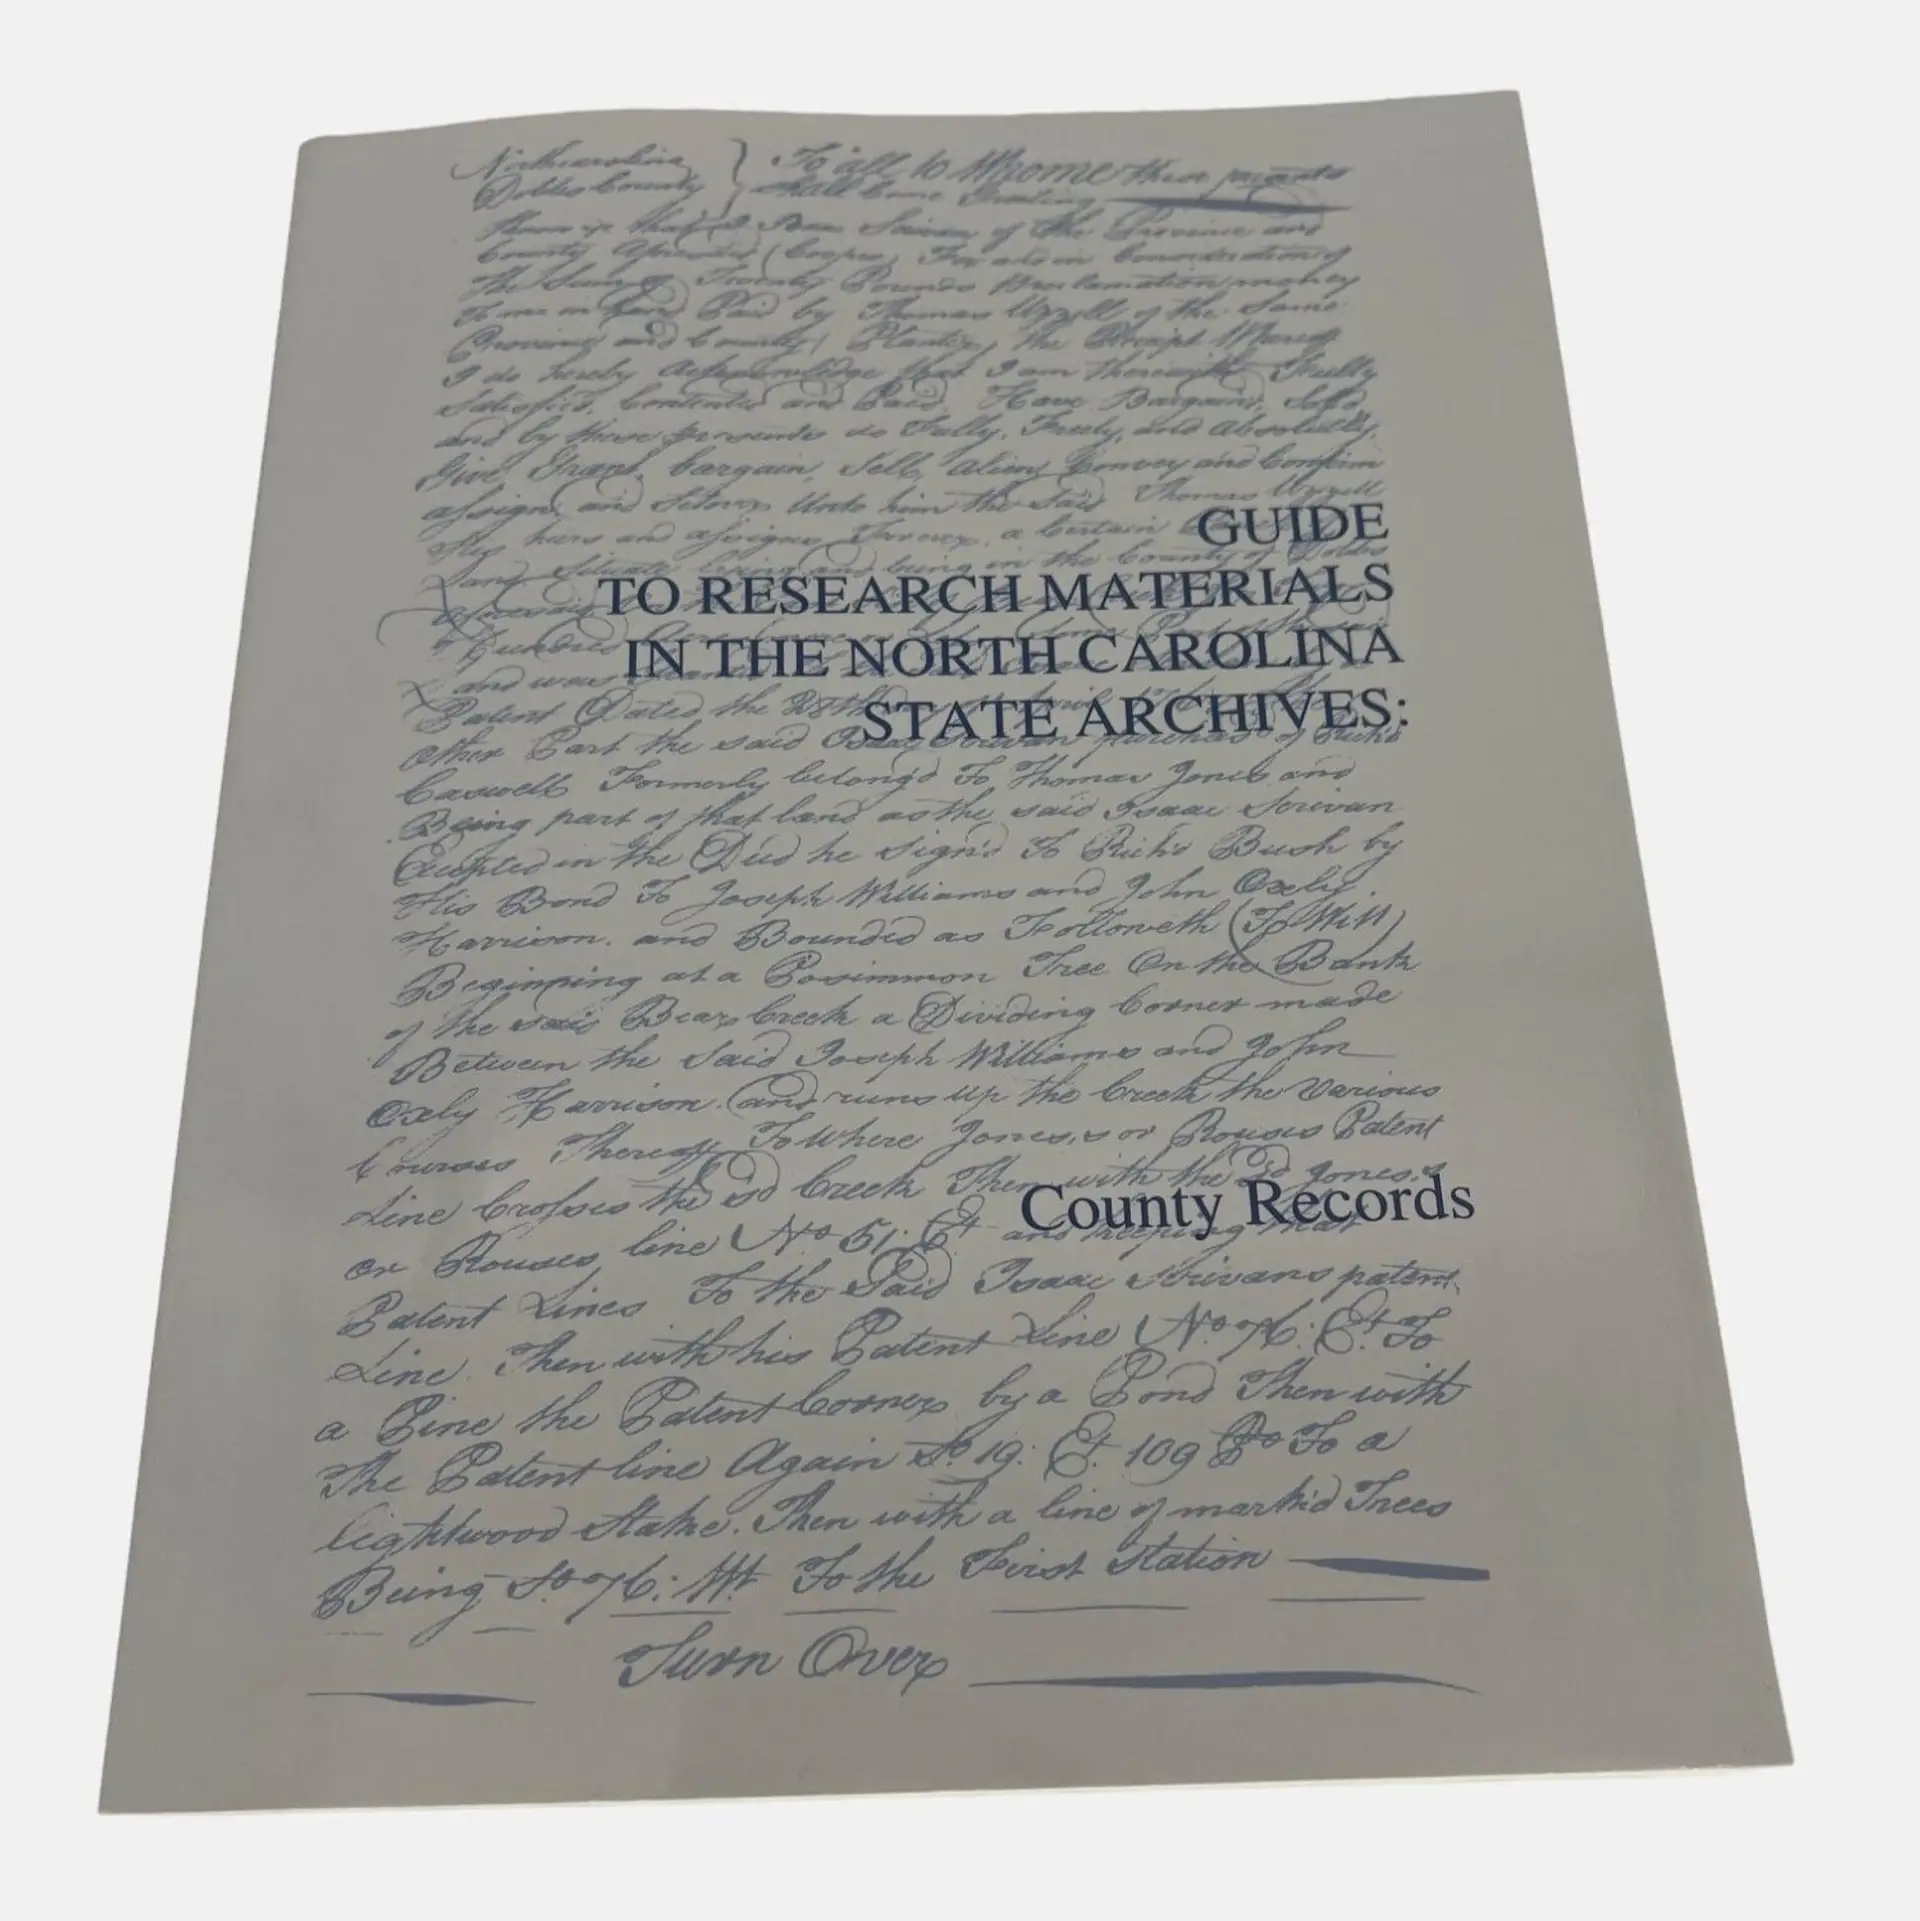 Northcarolina
Dobbs County
To all to Whome these presents
shall Come Greeting
Know ye that I Isaac Scrivan of the Province and
County Aforesaid (Cooper) For and in Consideration of
The Sum of Twenty Pounds Proclamation money
To me in hand Paid by Thomas Uzzell of the Same
Province and County, Planter, the Receipt Whereof
I do hereby Acknowledge that I am therewith Fully
Satisfied, Contented and Paid, Have Bargain'd, Sold,
and by these presents do Fully, Freely, and Absolutely,
Give, Grant, bargain, Sell, alien, Convey and Confirm
assign, and Setover Unto him the Said Thomas Uzzell
His heirs and assigns Forever, a Certain
GUIDE
Land Situate lying and being in the County of Dobbs
TO RESEARCH MATERIALS
Hundred
IN THE NORTH CAROLINA
and was
Patent Dated the 28th
STATE ARCHIVES:
Other Part the said Isaac Scrivan purchas'd of Rich'd
Caswell Formerly belong'd To Thomas Jones and
Being part of that land as the said Isaac Scrivan
Excepted in the Deed he Sign'd To Rich'd Bush by
His Bond To Joseph Williams and John Oxely
Harrison. and Bounded as Followeth (To Wit)
Beginning at a Posimmon Tree On the Bank
of the said Bear Creek a Dividing Corner made
Between the Said Joseph Williams and John
Oxely Harrison. and runs up the Creek the Various
Courses Thereof To Where Jones,s or Rouses Patent
Line Crosses the sd Creek Then with the sd Jones,s
County Records
or Rouses line No 51. Et and keeping that
Patent Lines To the Said Isaac Scrivans patent
Line. Then with his Patent Line No 76. Et. To
a Pine the Patent Corner by a Pond Then with
The Patent line Again So. 19. Et. 109 Po To a
Lightwood Stake. Then with a line of mark'd Trees
Being So 76. Wt. To the First Station
Turn Over